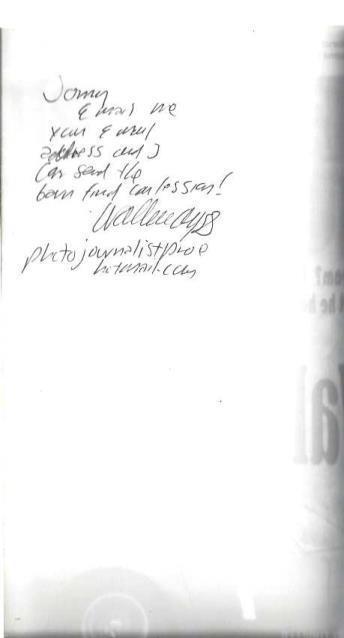 Jonny
E mail me
your E mail
address and I
can send the
bonn find confession!
photojournalistpro@
hotmail.com